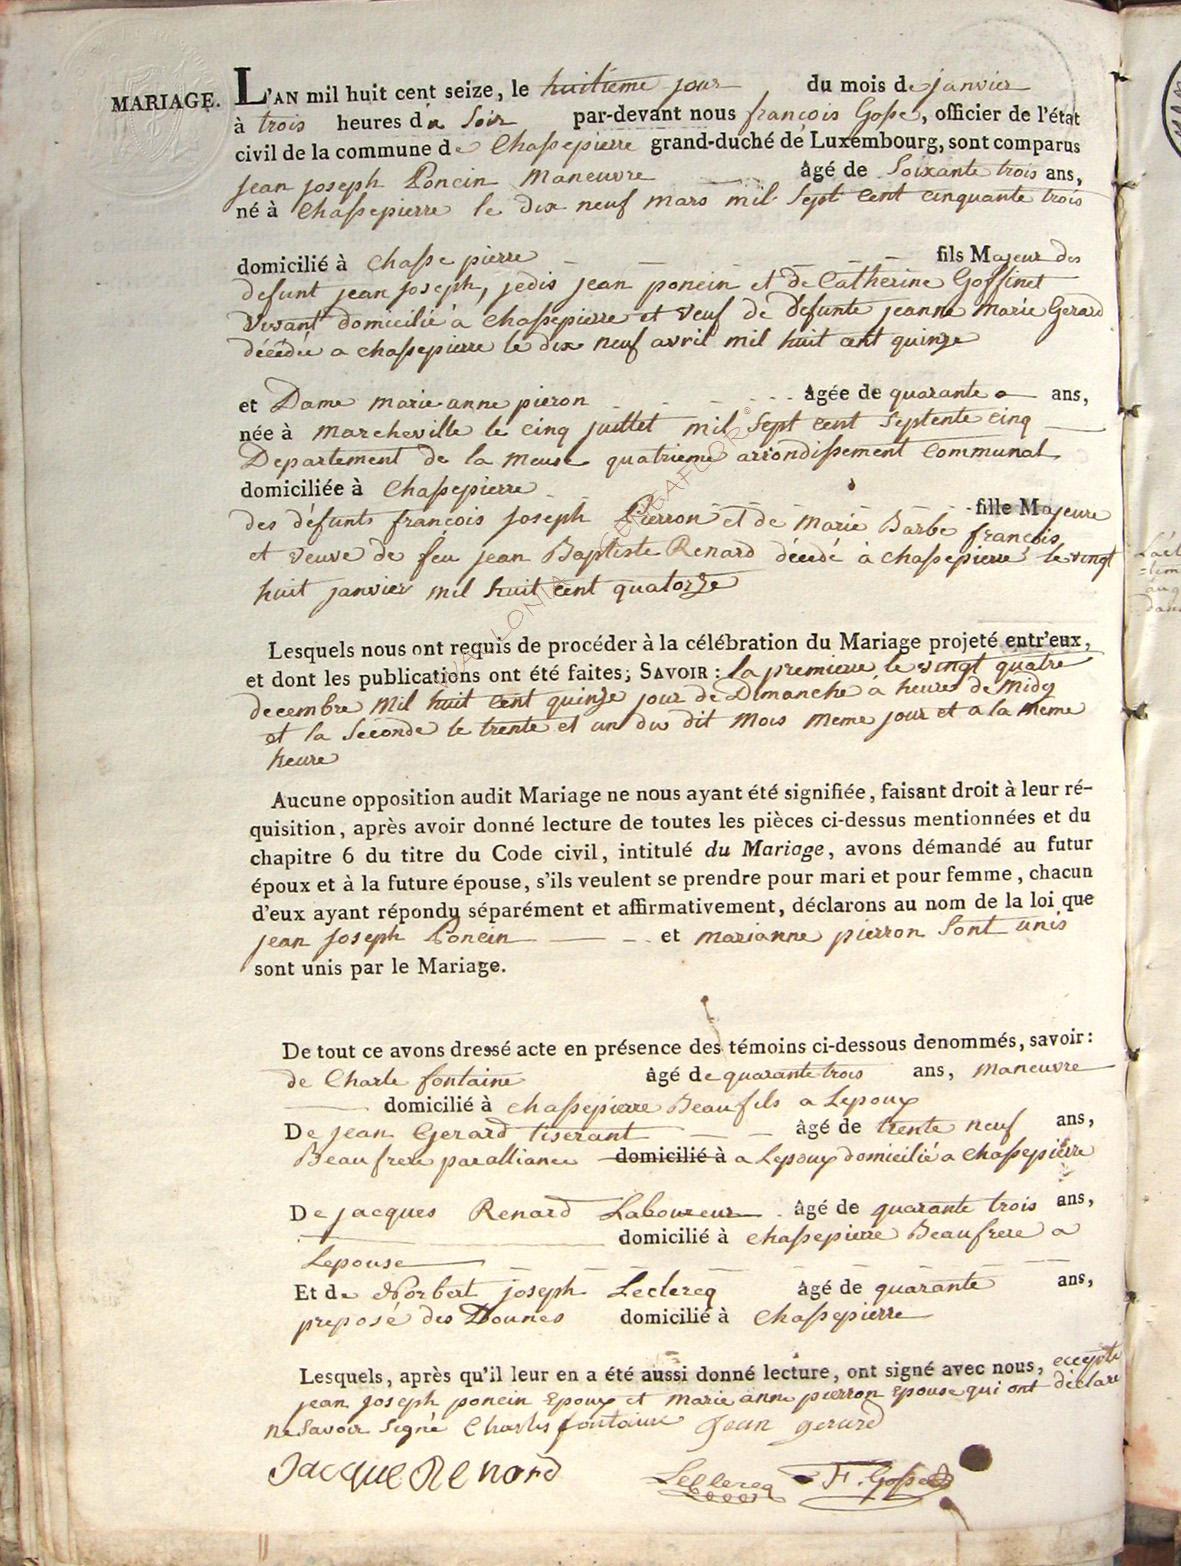 MARIAGE. L'AN mil huit cent seize, le huitieme jour du mois de janvier
à trois heures du Soir par-devant nous françois Gosse, officier de l'état
civil de la commune de Chassepierre grand-duché de Luxembourg, sont comparus
jean joseph Poncin Maneuvre âgé de Soixante trois ans,
né à Chassepierre le dix neuf mars mil Sept cent cinquante trois
domicilié à Chasse pierre fils Majeur des
defunt jean joseph, jedis jean poncin et de Catherine Goffinet
Vivant domicilié a Chassepierre et veuf de defunte jeanne Marie Gerard
décédée a chassepierre le dix neuf avril mil huit cent quinze
et Dame marie anne pieron âgée de quarante ans,
née à Marcheville le cinq juillet mil Sept cent Septente cinq
Departement de la Meuse quatrieme arrondissement Communal
domiciliée à Chassepierre fille Majeure
des défunts françois joseph Pierron et de Marie Barbe francois
et veuve de feu jean Baptiste Renard décédé à chassepierre le vingt
huit janvier mil huit cent quatorze
Lesquels nous ont requis de procéder à la célébration du Mariage projeté entr'eux,
et dont les publications ont été faites; SAVOIR : la premiere le vingt quatre
decembre mil huit cent quinze jour de Dimanche à heures de Midy
et la Séconde le trente et un du dit Mois Meme jour et a la meme
heure
Aucune opposition audit Mariage ne nous ayant été signifiée, faisant droit à leur ré-
quisition, après avoir donné lecture de toutes les pièces ci-dessus mentionnées et du
chapitre 6 du titre du Code civil, intitulé du Mariage, avons démandé au futur
époux et à la future épouse, s'ils veulent se prendre pour mari et pour femme, chacun
d'eux ayant répondu séparément et affirmativement, déclarons au nom de la loi que
jean joseph Poncin et marianne pierron Sont unis
sont unis par le Mariage.
De tout ce avons dressé acte en présence des témoins ci-dessous denommés, savoir:
de Charle fontaine âgé de quarante trois ans, maneuvre
domicilié à chassepierre Beaufils a Lepoux
De jean Gerard tiserant âgé de trente neuf ans,
Beaufrere paralliance domicilié à a Lepoux domicilié a Chassepierre
De jacques Renard Laboureur âgé de quarante trois ans,
domicilié à chassepierre Beaufrere a
Lepouse
Et de Norbert joseph Leclercq âgé de quarante ans,
preposé des Dounes domicilié à Chassepierre
Lesquels, après qu'il leur en a été aussi donné lecture, ont signé avec nous, eccepté
jean joseph poncin Epoux et marie anne pierron Epouse qui ont déclaré
ne Savoir Signé Charles fontaine Jean gerard
Jacque Renard Leclercq F. Gosse